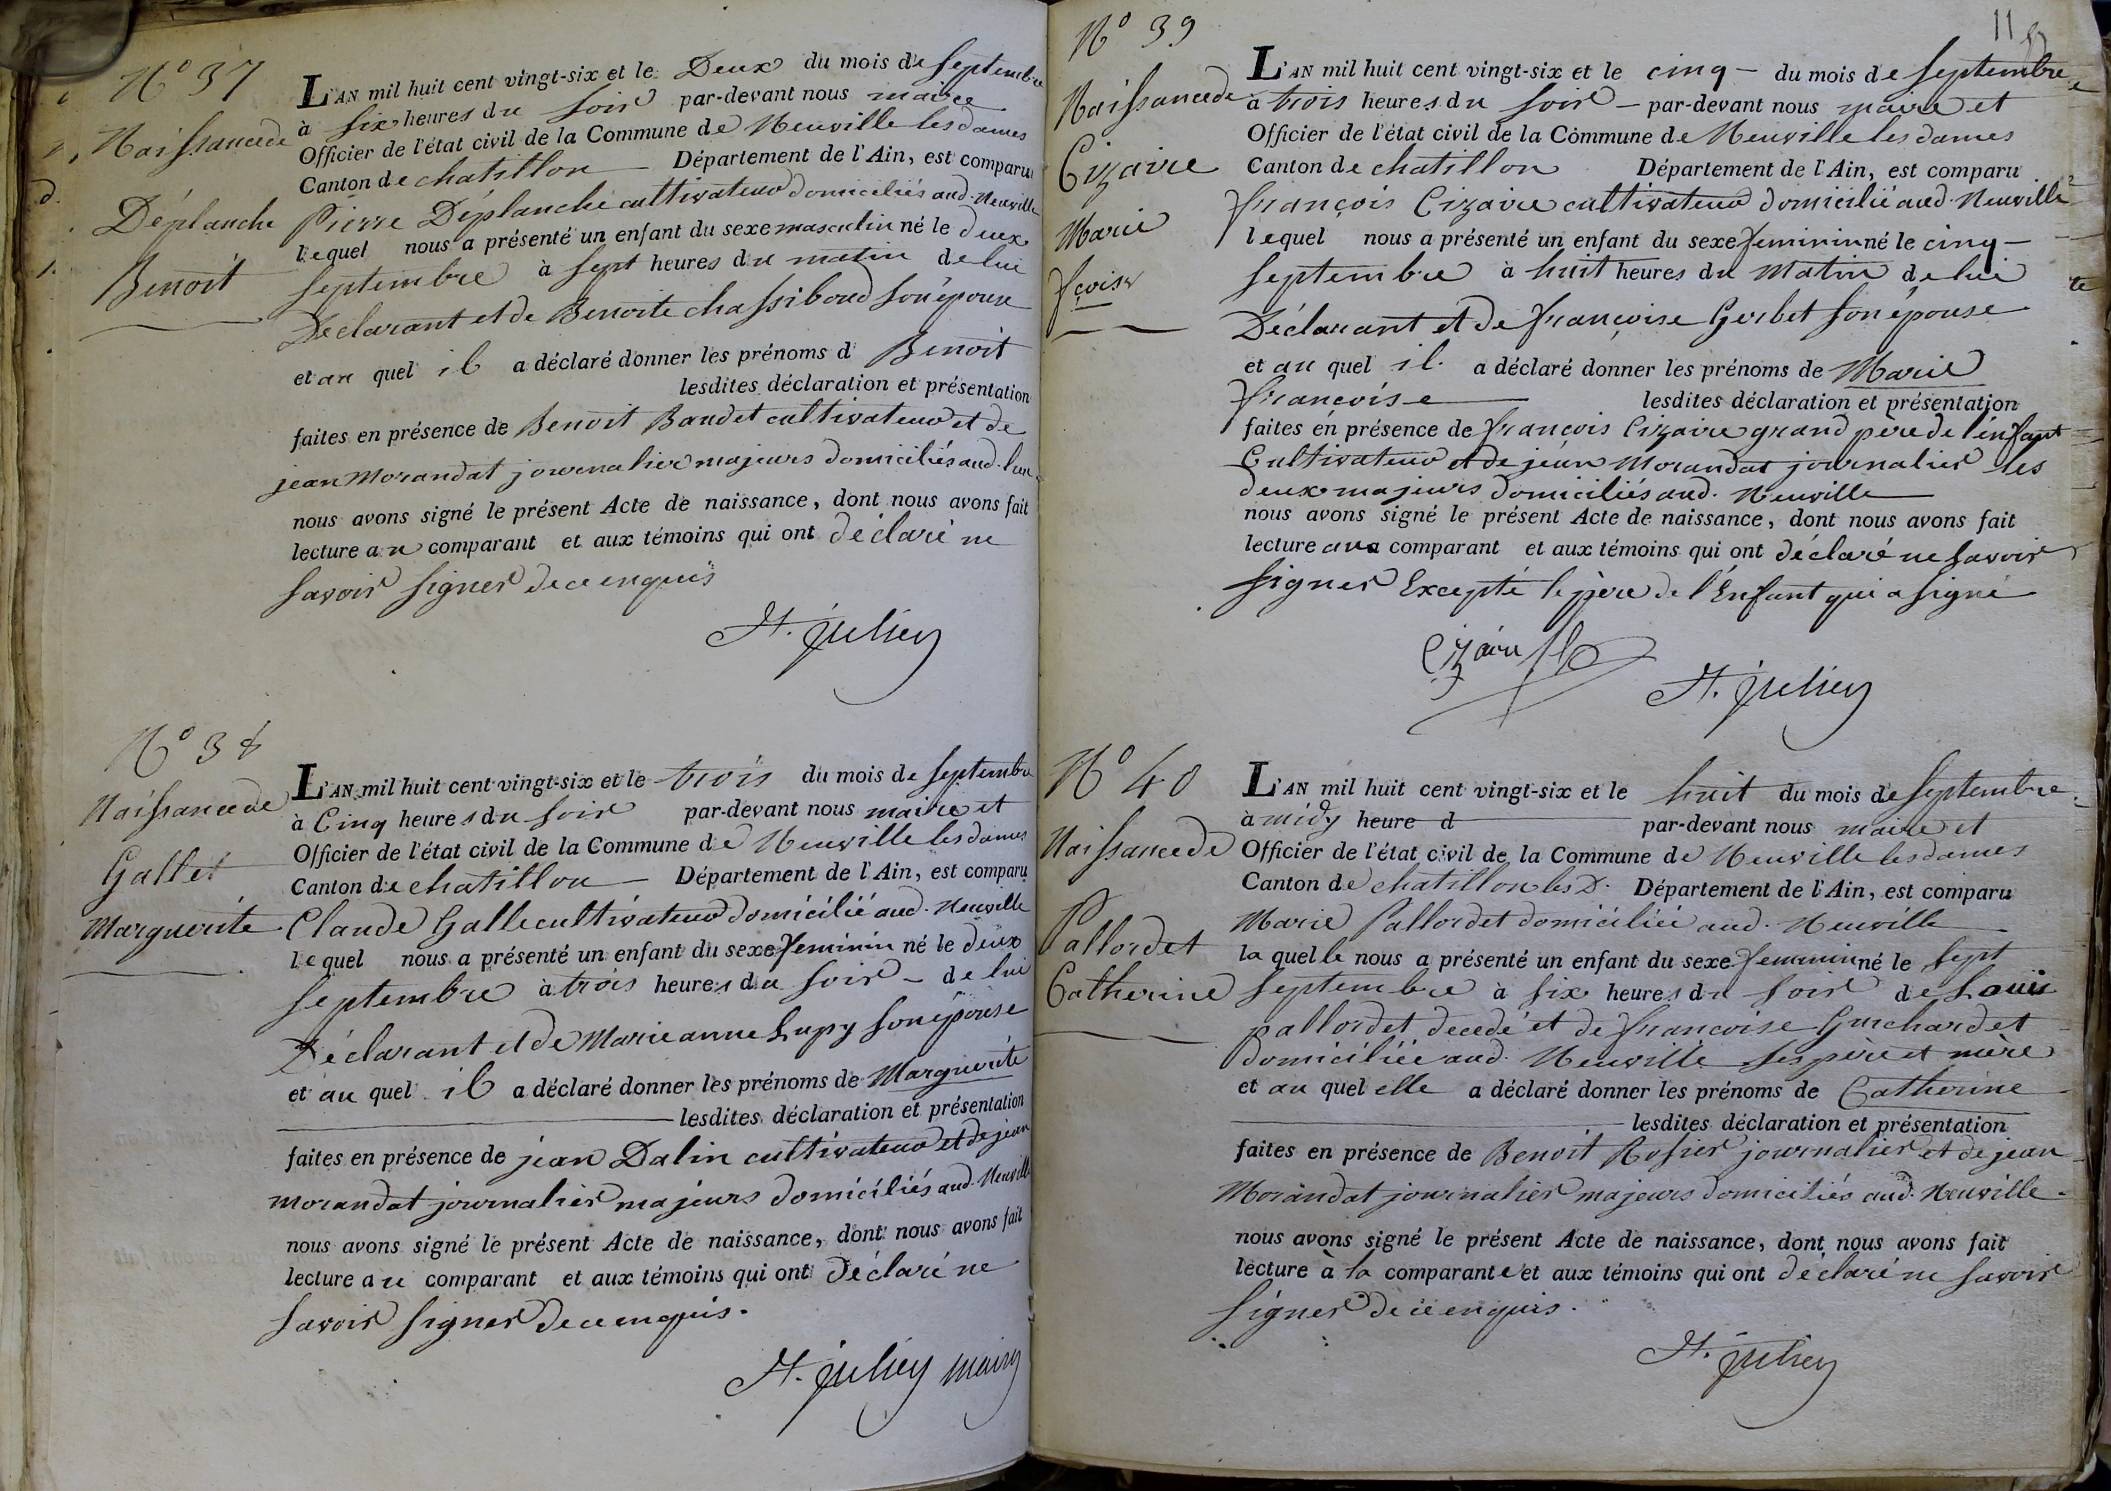 N° 37
Naissance de
Déplanche
Benoit
L'AN mil huit cent vingt-six et le Deux du mois de septembre
à six heures du soir par-devant nous maire
Officier de l'état civil de la Commune de Neuville les dames
Canton de chatillon Département de l'Ain, est comparu
Pierre Déplanche cultivateur domiciliés aud. Neuville
lequel nous a présenté un enfant du sexe masculin né le deux
septembre à sept heures du matin de lui
Déclarant et de Benoite chassiboud son épouse
et au quel il a déclaré donner les prénoms d Benoit
lesdites déclaration et présentation
faites en présence de Benoit Baudet cultivateur et de
jean Morandat journalier majeurs domiciliés aud.
nous avons signé le présent Acte de naissance, dont nous avons fait
lecture au comparant et aux témoins qui ont déclaré ne
savoir signer de ce enquis
N° 38
Naissance de
Gallet
Marguerite
L'AN mil huit cent vingt-six et le trois du mois de septembre
à Cinq heures du soir par-devant nous maire et
Officier de l'état civil de la Commune de Neuville les dames
Canton de chatillon Département de l'Ain, est comparu
Claude Galle cultivateur domicilié aud. Neuville
lequel nous a présenté un enfant du sexe feminin né le deux
septembre à trois heures du soir de lui
Déclarant et de Marie anne Lupy son épouse
et au quel il a déclaré donner les prénoms de Marguerite
lesdites déclaration et présentation
faites en présence de jean Dalin cultivateur et de jean
morandat journalier majeurs domiciliés aud. Neuville
nous avons signé le présent Acte de naissance, dont nous avons fait
lecture au comparant et aux témoins qui ont déclaré ne
savoir signer de ce enquis.
julien maire
11
N° 39
Naissance de
Cizaire
Marie
fçoise
L'AN mil huit cent vingt-six et le cinq du mois de septembre
à trois heures du soir par-devant nous maire et
Officier de l'état civil de la Commune de Neuville les dames
Canton de chatillon Département de l'Ain, est comparu
françois Cizaire cultivateur domicilié aud. Neuville
lequel nous a présenté un enfant du sexe feminin né le cinq
septembre à huit heures du Matin de lui
Déclarant et de françoise Gerbet son épouse
et au quel il a déclaré donner les prénoms de Marie
françoise lesdites déclaration et présentation
faites en présence de françois Cizaire grand père de l'enfant
Cultivateur et de jean Morandat journalier les
deux majeurs domiciliés aud. Neuville
nous avons signé le présent Acte de naissance, dont nous avons fait
lecture au comparant et aux témoins qui ont déclaré ne savoir
signer Excepté le père de l'Enfant qui a signé
Cizaire
julien
N° 40
Naissance de
Pallordet
Catherine
L'AN mil huit cent vingt-six et le huit du mois de septembre
à midy heure d par-devant nous maire et
Officier de l'état civil de la Commune de Neuville les dames
Canton de chatillon les D. Département de l'Ain, est comparu
Marie Pallordet domiciliée aud. Neuville
la quelle nous a présenté un enfant du sexe feminin né le sept
septembre à six heures du soir de Louis
pallordet decedé et de françoise Guichardet
domiciliée aud. Neuville ses père et mère
et au quel elle a déclaré donner les prénoms de Catherine
lesdites déclaration et présentation
faites en présence de Benoit Rosier journalier et de jean
Morandat journalier majeurs domiciliés aud. Neuville
nous avons signé le présent Acte de naissance, dont nous avons fait
lecture à la comparante et aux témoins qui ont déclaré ne savoir
signer de ce enquis.
julien